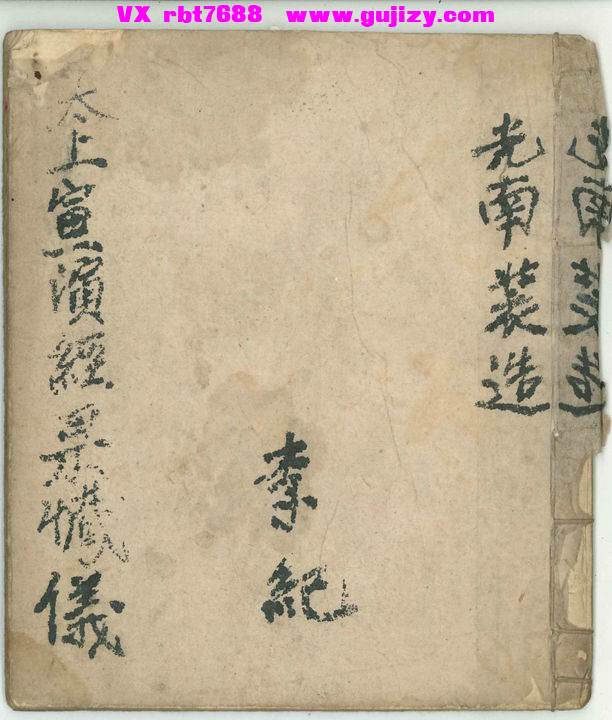 VX rbt7688 www.gujizy.com
南
光南裝造
紀
太上宣演經懺儀